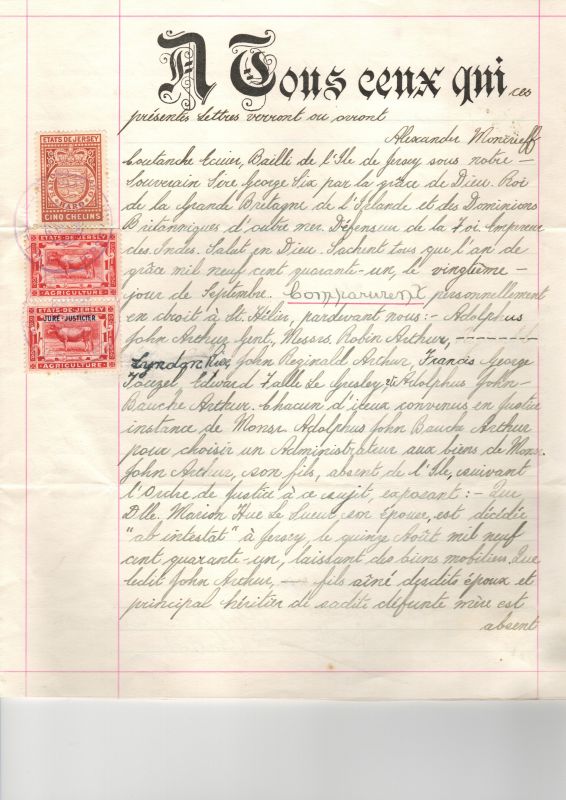 A Tous ceux qui ces
présentes Lettres verront ou oiront
Alexander Moncrieff
Coutanche Ecuier, Bailli de l'Ile de Jersey sous notre —
Souverain Sire George Six par la grâce de Dieu. Roi
de la Grande Bretagne de l'Irlande et des Dominions
Britanniques d'outre mer. Défenseur de la Foi Empereur
des Indes. Salut en Dieu. Sachent tous que l'an de
grâce mil neuf cent quarante-un, le vingtième —
jour de Septembre. Comparurent personnellement
en droit à St. Hélier, pardevant nous:— Adolphus
John Arthur Gent, Messrs. Robin Arthur, --------
John Reginald Arthur, Francis George
Touzel, Edward Falle Le Gresley, & Adolphus John-
Bauche Arthur. Chacun d'iceux convenus en Justice
instance de Monsr. Adolphus John Bauche Arthur
pour choisir un Administrateur aux biens de Monsr.
John Arthur, son fils, absent de l'Ile, suivant
l'Ordre de Justice à ce sujet, exposant:— Que
Dlle. Marion Hue Le Sueur, son épouse, est décédée
"ab intestat" à Jersey, le quinze Août mil neuf
cent quarante-un, laissant des biens mobiliers. Que
ledit John Arthur, — fils aîné desdits époux et
principal héritier de sadite défunte mère est
absent
ETATS DE JERSEY
CINQ CHELINS
ETATS DE JERSEY
AGRICULTURE
ETATS DE JERSEY
JURÉ-JUSTICIER
AGRICULTURE